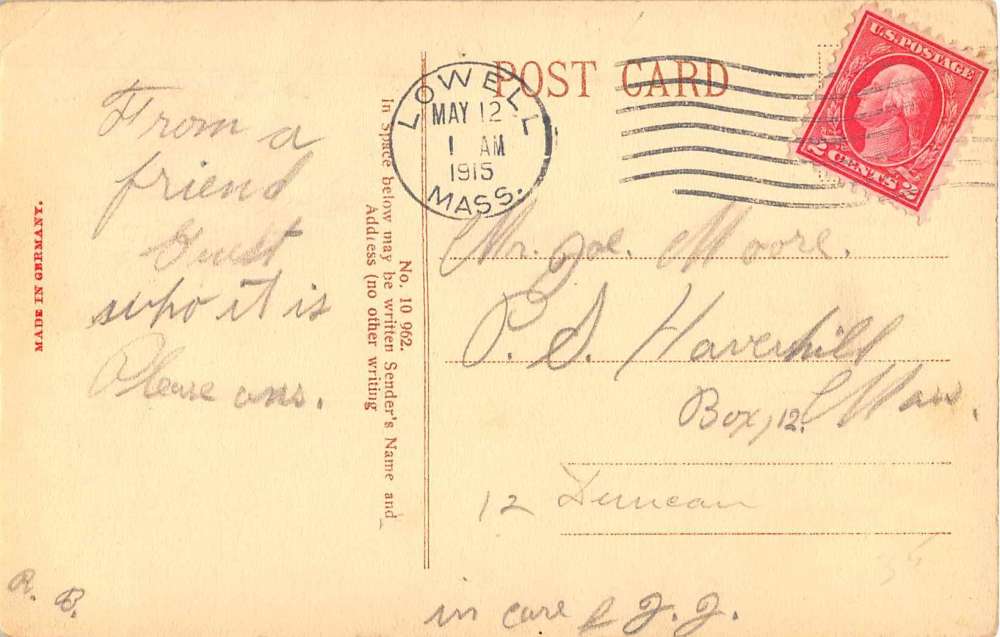 POST CARD
U.S. POSTAGE
2 CENTS 2
LOWELL
MAY 12
1 AM
1915
MASS.
MADE IN GERMANY.
No. 10 962.
In space below may be written Sender's Name and
Address (no other writing
From a
friend
Guest
who it is
Please ans.
R. B.
Mr. Joe. Moore.
P. S. Haverhill
Box, 12. Mass.
12 Duncan
in care J. J.